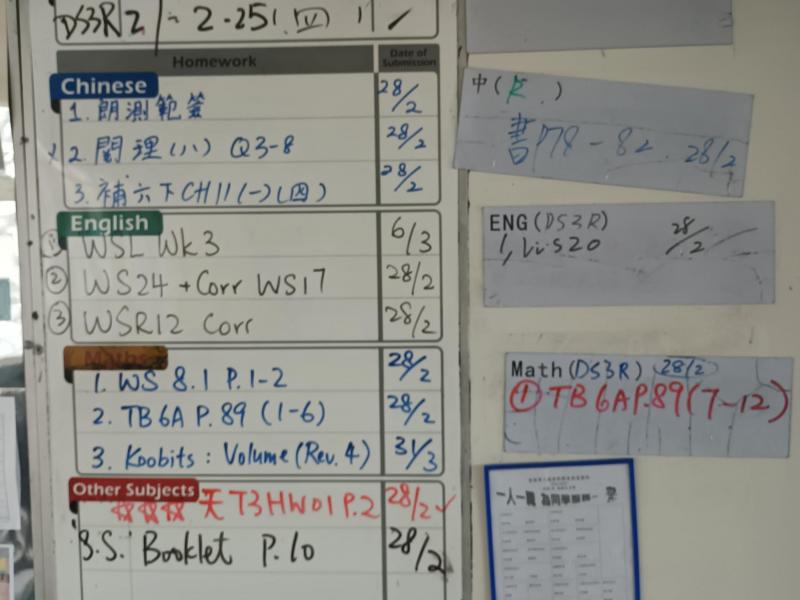 Homework
Date of Submission
Chinese
1. 朗測範簽 28/2
2. 閱理(八) Q3-8 28/2
3. 補六下CH11(一)(四) 28/2
English
① WSL Wk3 6/3
② WS24 + Corr WS17 28/2
③ WSR12 Corr 28/2
Maths
1. WS 8.1 P.1-2 28/2
2. TB 6A P. 89 (1-6) 28/2
3. Koobits : Volume (Rev. 4) 31/3
Other Subjects
天 T3 HW01 P.2 28/2 ✓
S.S. Booklet P.10 28/2
中( )
書P78 - 82 28/2
ENG (DS3R)
28/2
Math (DS3R) 28/2
① TB 6A P.89 (7-12)
一人一職